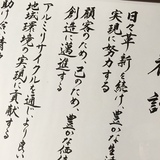 日々革新を続け、豊かな生活
実現に努力する
顧客のため、己のため、豊かな価値
創造に邁進する
アルミリサイクルを通じより良い
地球環境の実現に貢献する
助け合い